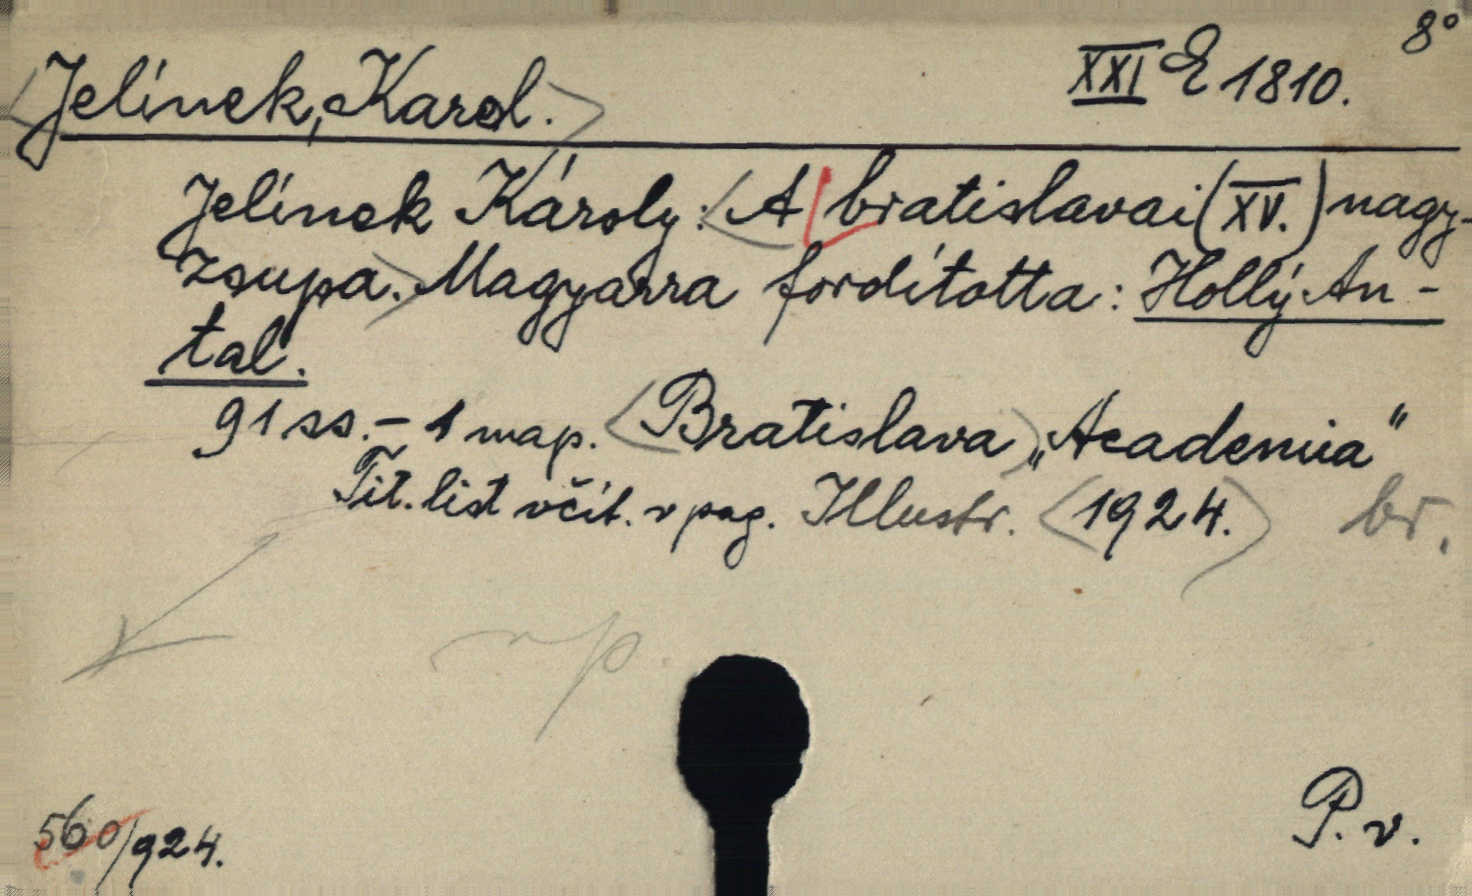 8°
Jelínek, Karol. XXI E 1810.
Jelínek Károly: A bratislavai (XV.) nagy-
zsupa. Magyarra fordította: Hollý An-
tal.
91 ss. – 1 map. Bratislava „Academia"
Tit. list včít. v pag. Illustr. 1924. br.
P. v.
560/924.